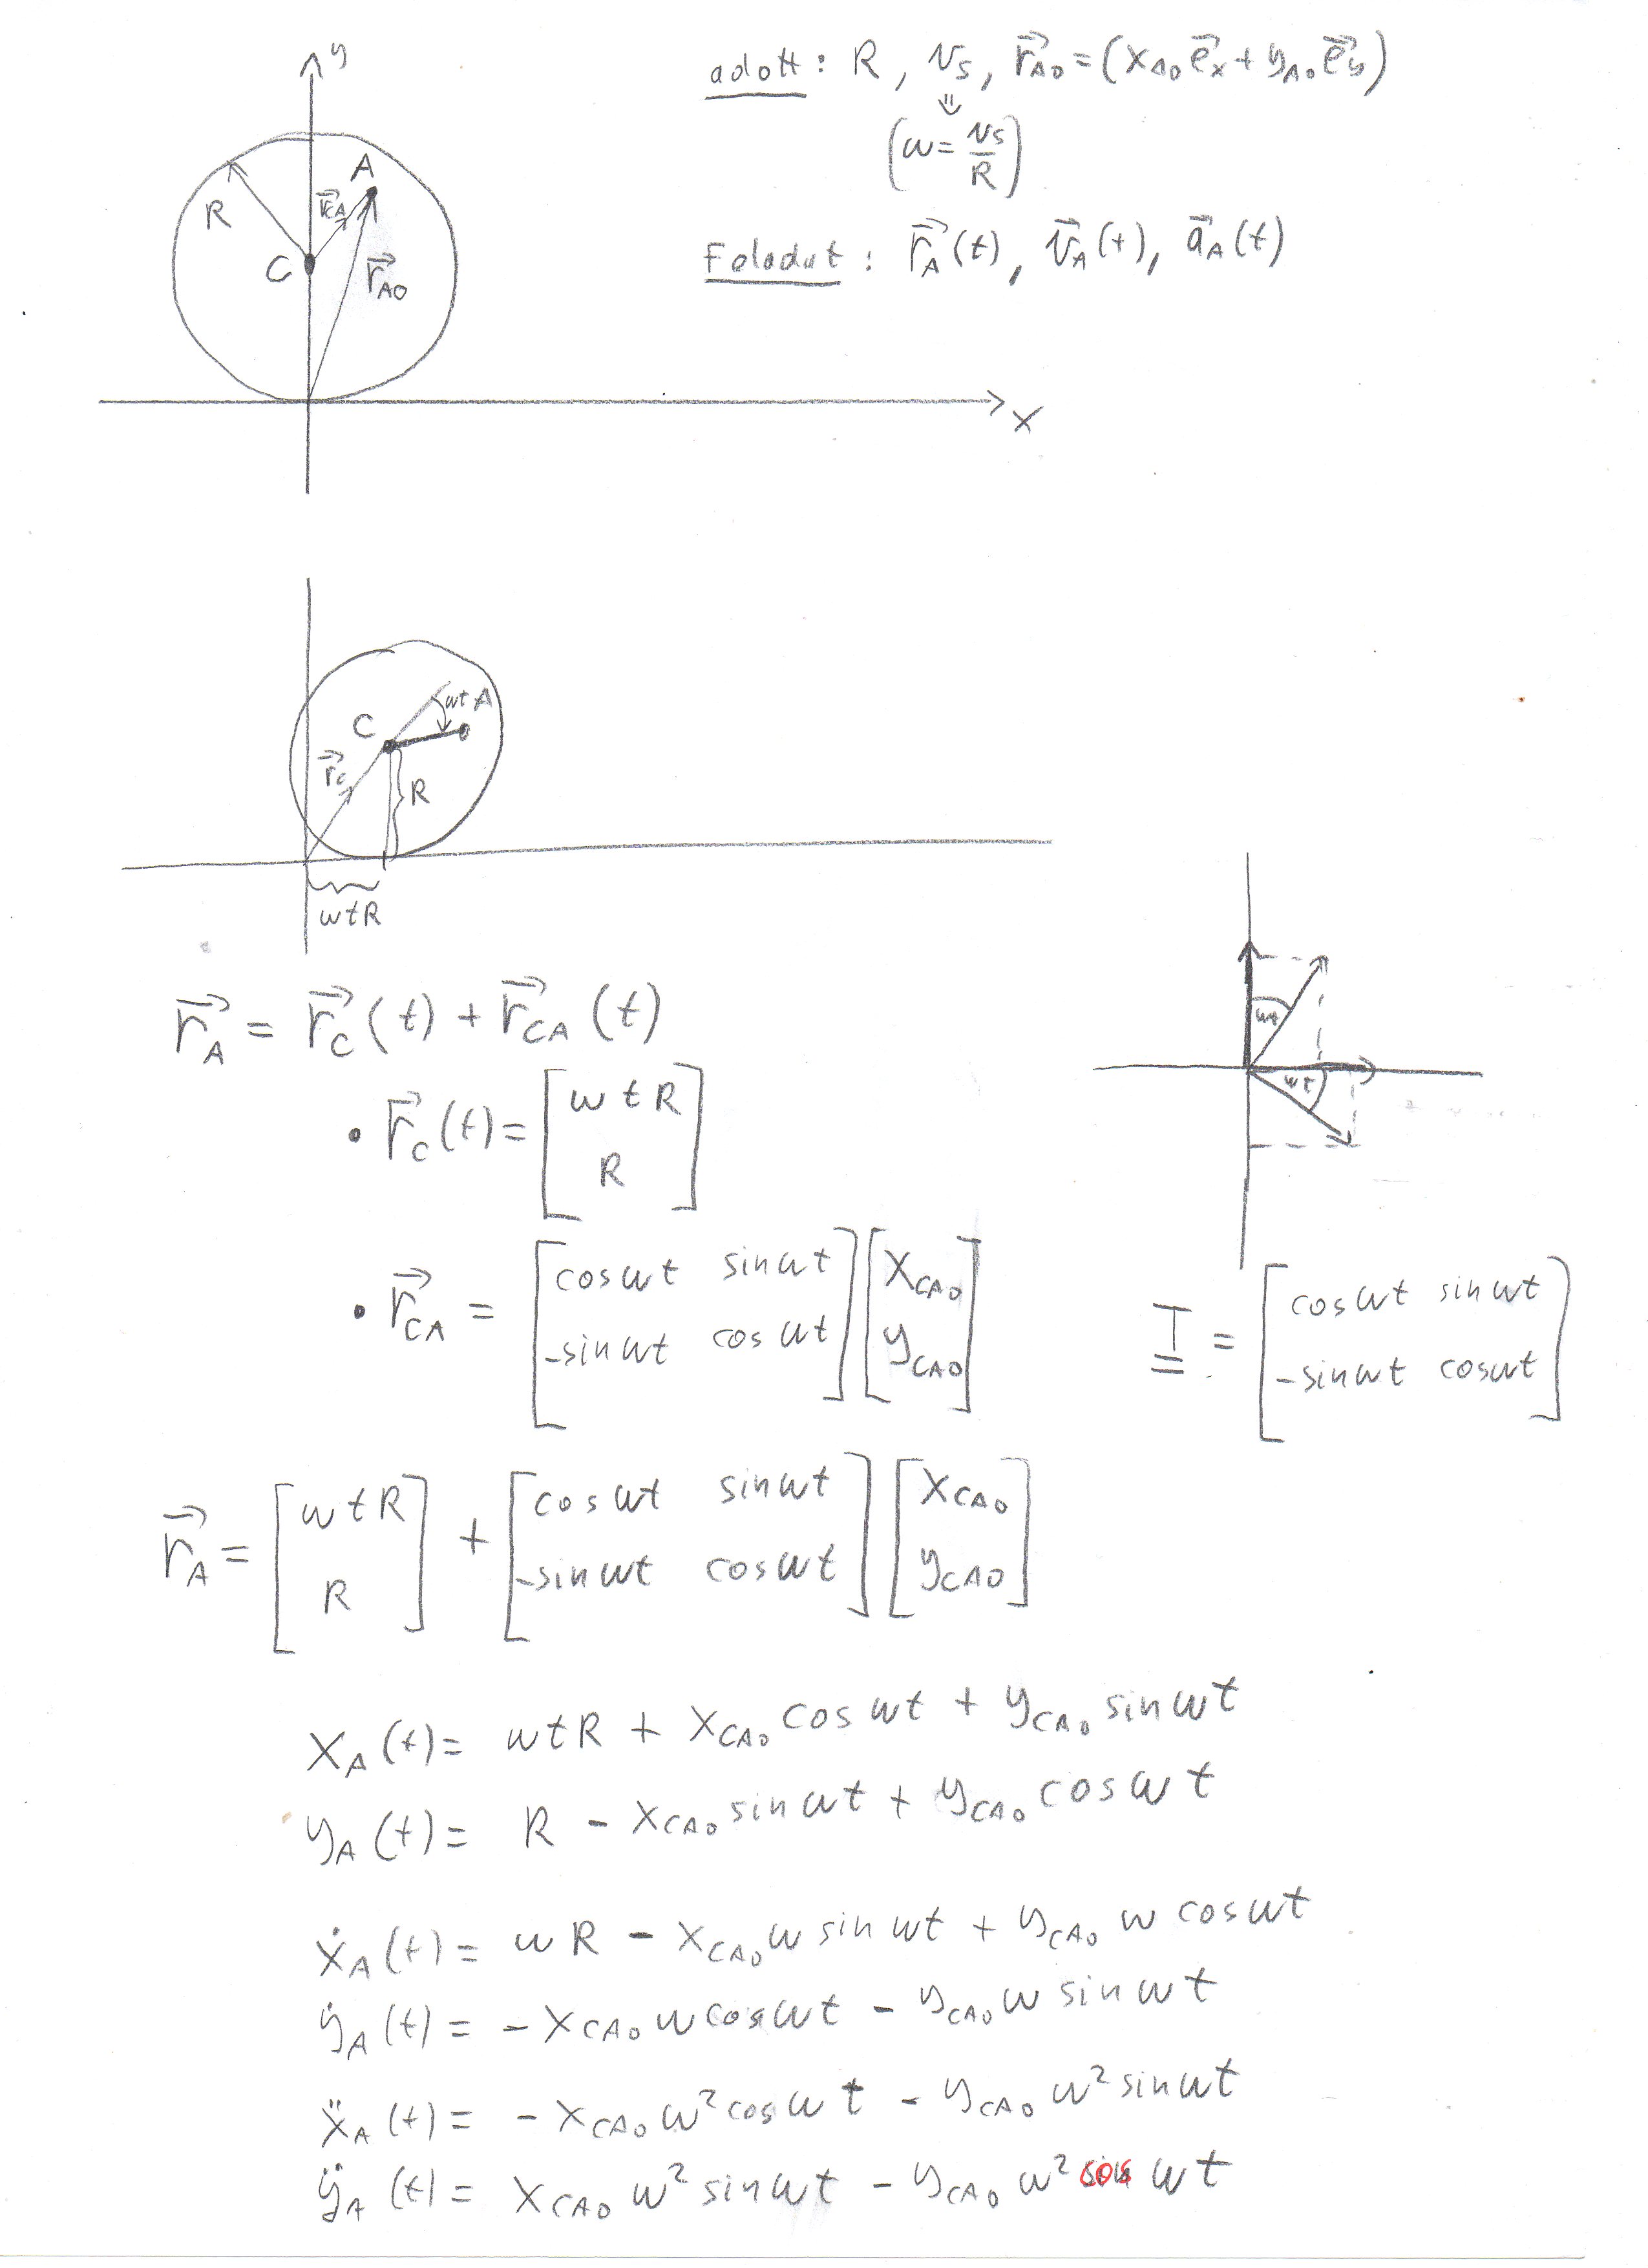 adott: R, vₛ, r⃗_A0 = (x_A0 e⃗_x + y_A0 e⃗_y)
⇓
(ω = vₛ/R)
Feladat: r⃗_A(t), v⃗_A(t), a⃗_A(t)
y
A
R
r⃗_CA
C
r⃗_A0
x
ωt A
C
r⃗_C
R
ωtR
ωt
ωt
r⃗_A = r⃗_C(t) + r⃗_CA(t)
• r⃗_C(t) = [ωtR; R]
• r⃗_CA = [cosωt sinωt; -sinωt cosωt] [x_CA0; y_CA0]
T = [cosωt sinωt; -sinωt cosωt]
r⃗_A = [ωtR; R] + [cosωt sinωt; -sinωt cosωt] [x_CA0; y_CA0]
x_A(t) = ωtR + x_CA0 cosωt + y_CA0 sinωt
y_A(t) = R - x_CA0 sinωt + y_CA0 cosωt
ẋ_A(t) = ωR - x_CA0 ω sinωt + y_CA0 ω cosωt
ẏ_A(t) = -x_CA0 ω cosωt - y_CA0 ω sinωt
ẍ_A(t) = -x_CA0 ω² cosωt - y_CA0 ω² sinωt
ÿ_A(t) = x_CA0 ω² sinωt - y_CA0 ω² cos ωt